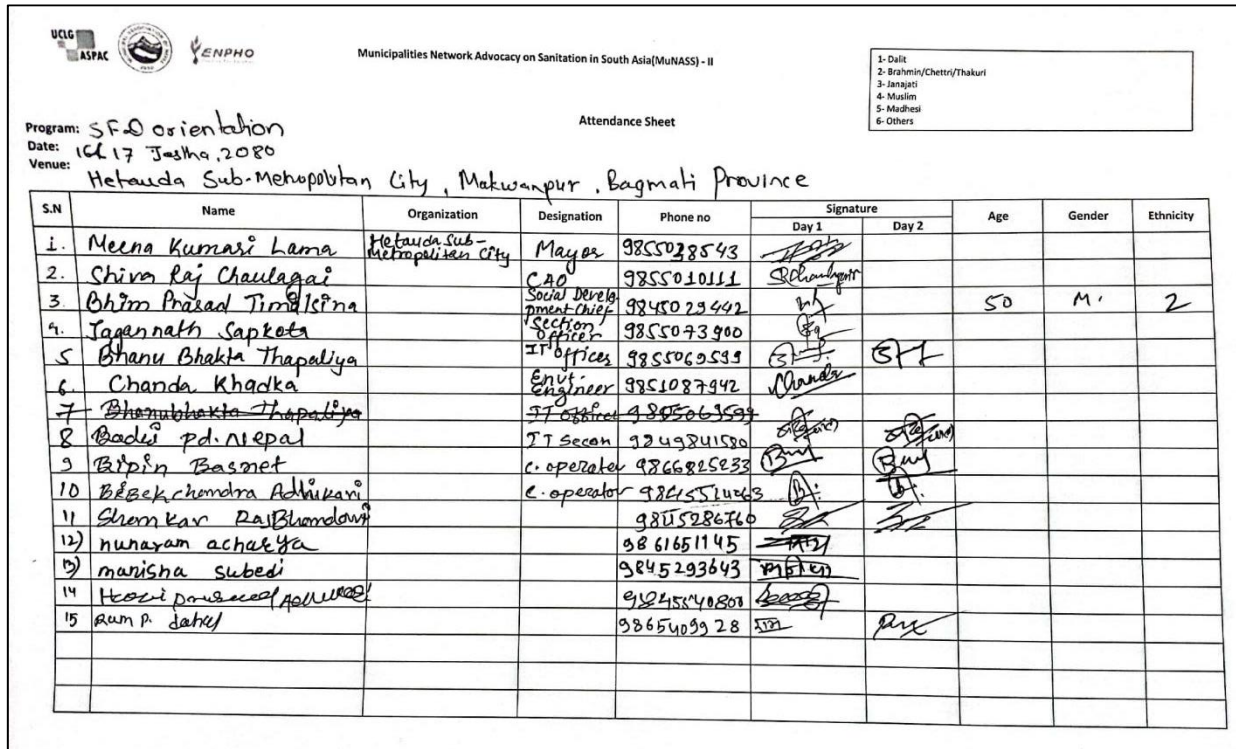 UCLG
ASPAC
ENPHO
Municipalities Network Advocacy on Sanitation in South Asia(MuNASS) - II
1- Dalit
2- Brahmin/Chettri/Thakuri
3- Janajati
4- Muslim
5- Madhesi
6- Others
Attendance Sheet
Program: SFD orientation
Date: 17 Jestha, 2080
Venue: Hetauda Sub-Metropolitan City, Makwanpur, Bagmati Province
S.N Name Organization Designation Phone no Signature Age Gender Ethnicity
Day 1 Day 2
1. Meena Kumari Lama Hetauda Sub-Metropolitan City Mayor 9855028543
2. Shiva Raj Chaulagai CAO 9855010111
3. Bhim Prasad Timalsina Social Development Chief 9845029442 50 M. 2
4. Jagannath Sapkota Section officer 9855073900
5 Bhanu Bhakta Thapaliya IT officer 9855069599
6. Chanda Khadka Envt. Engineer 9851087942 Chanda
7 Bhanubhakta Thapaliya IT officer 9855069599
8 Badri pd. Nepal IT Secon 9849841580
9 Bipin Basnet C. operater 9866825233
10 Bibek chandra Adhikari C. operator
11 9845286760
12) nunaram acharya 9861651145
13) manisha subedi 9845293643
14
15 Ram P. dahal 9865409928 राम